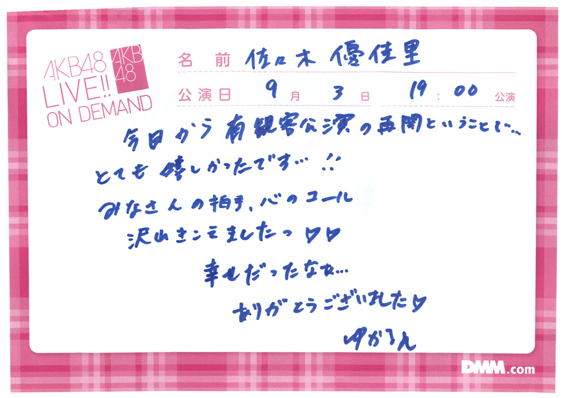 AKB48
LIVE!!
ON DEMAND
AKB
48
名前 佐々木 優佳里
公演日 9月 3日 19:00 公演
今日から有観客公演の再開ということで…
とても嬉しかったです…!!
みなさんの拍手、心のコール
沢山きこえましたっ♡♡
幸せだったなぁ…
ありがとうございました♡
ゆかるん
DMM.com